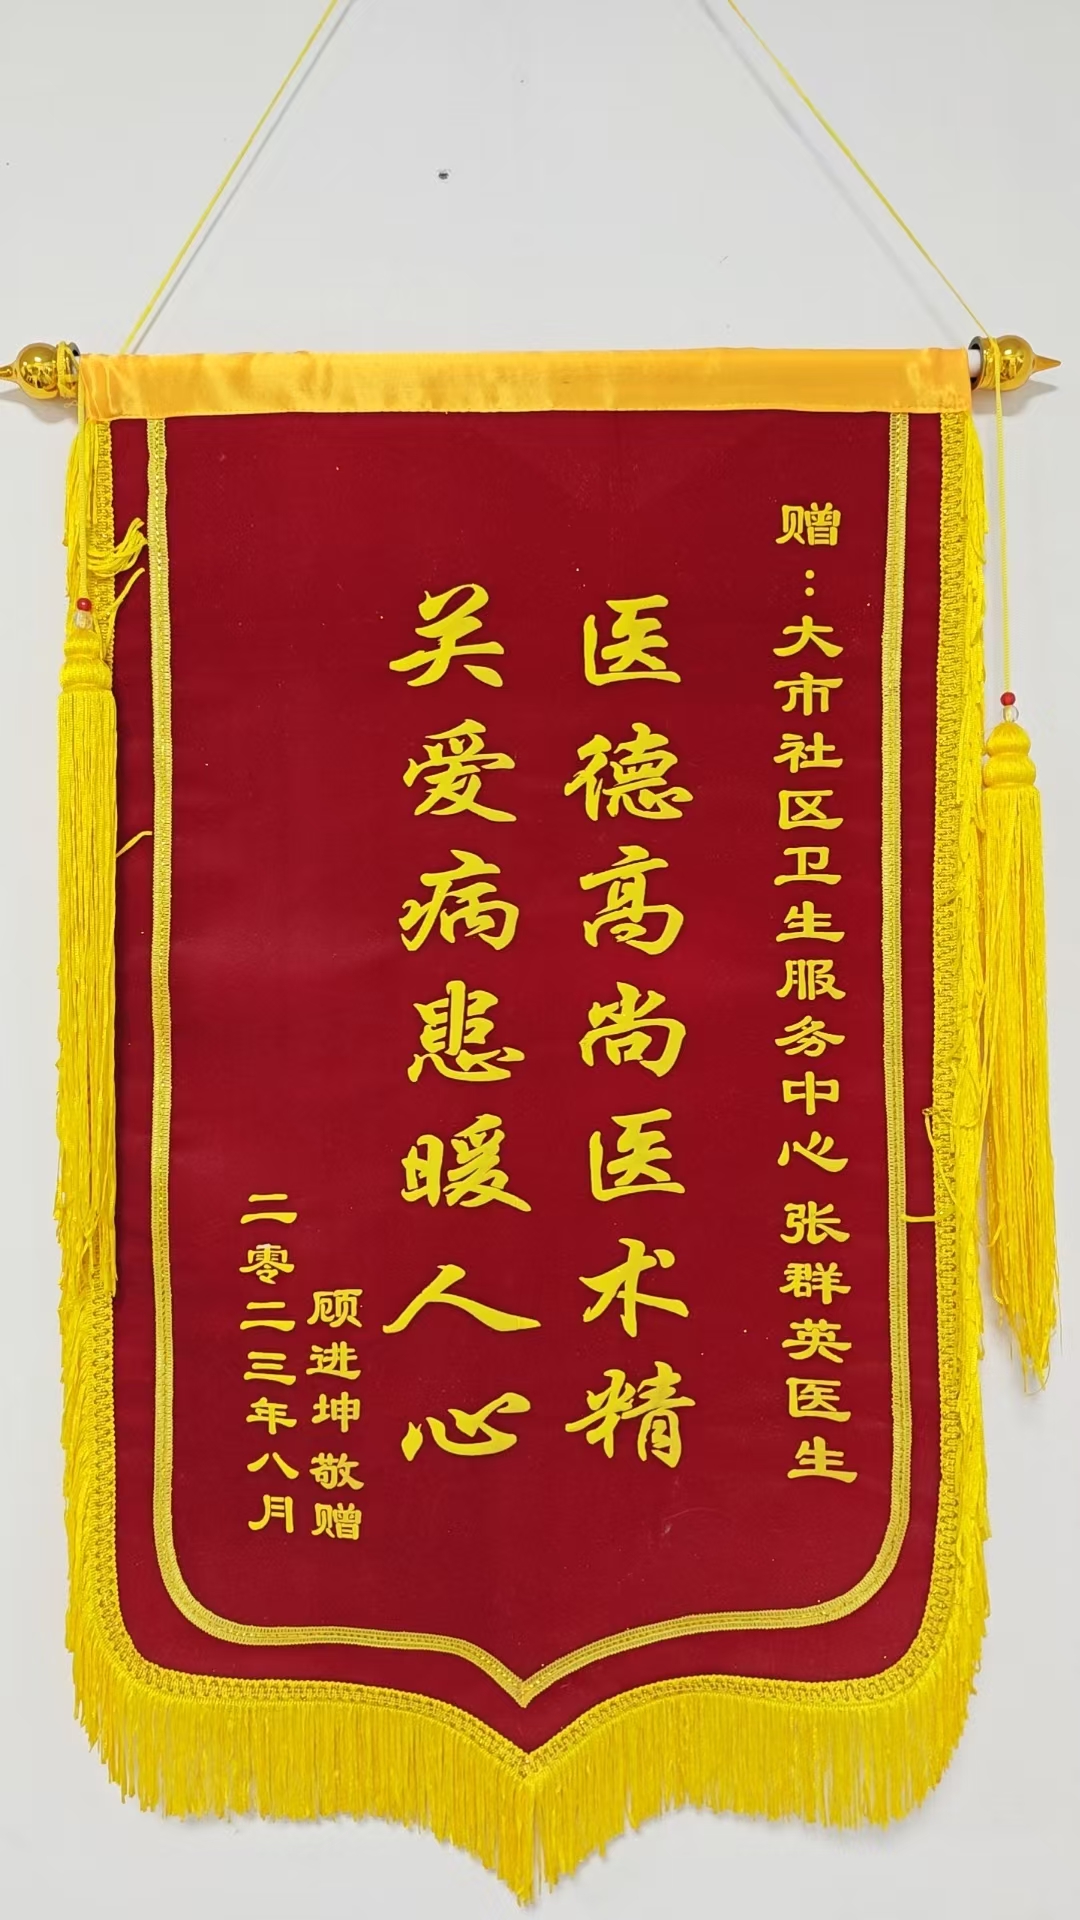 赠：大市社区卫生服务中心 张群英医生
医德高尚医术精
关爱病患暖人心
顾进坤 敬赠
二零二三年八月